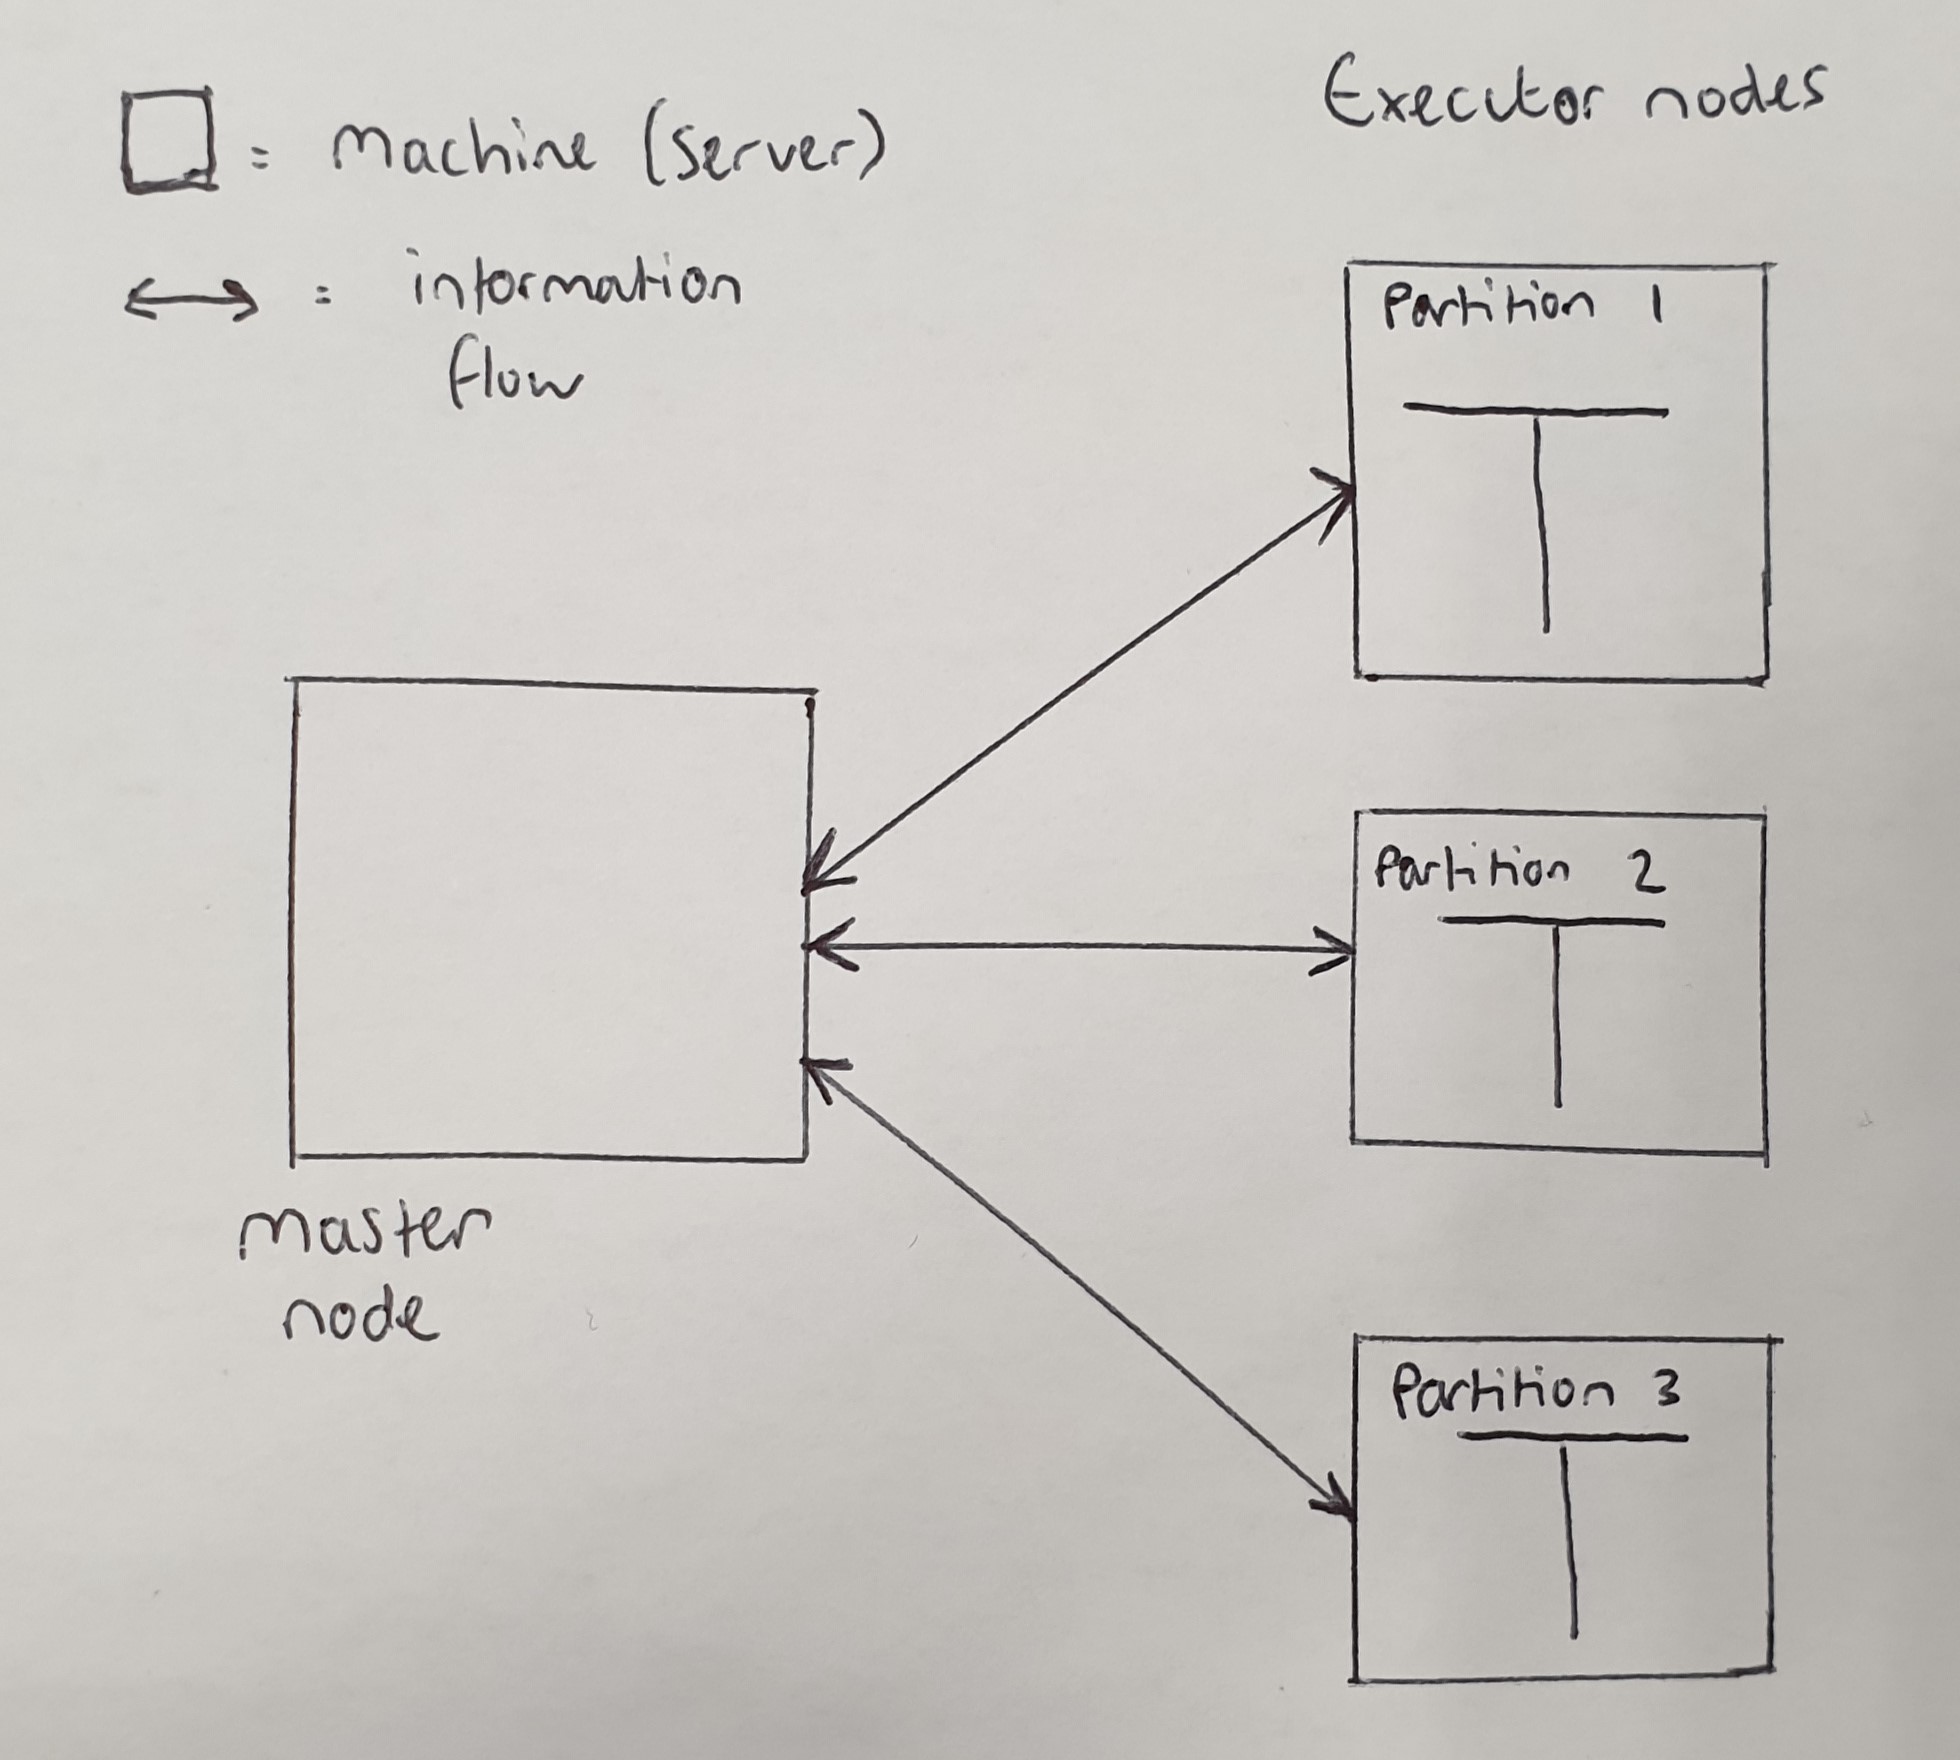 = machine (server)
= information
flow
Executor nodes
Partition 1
Partition 2
Partition 3
master
node